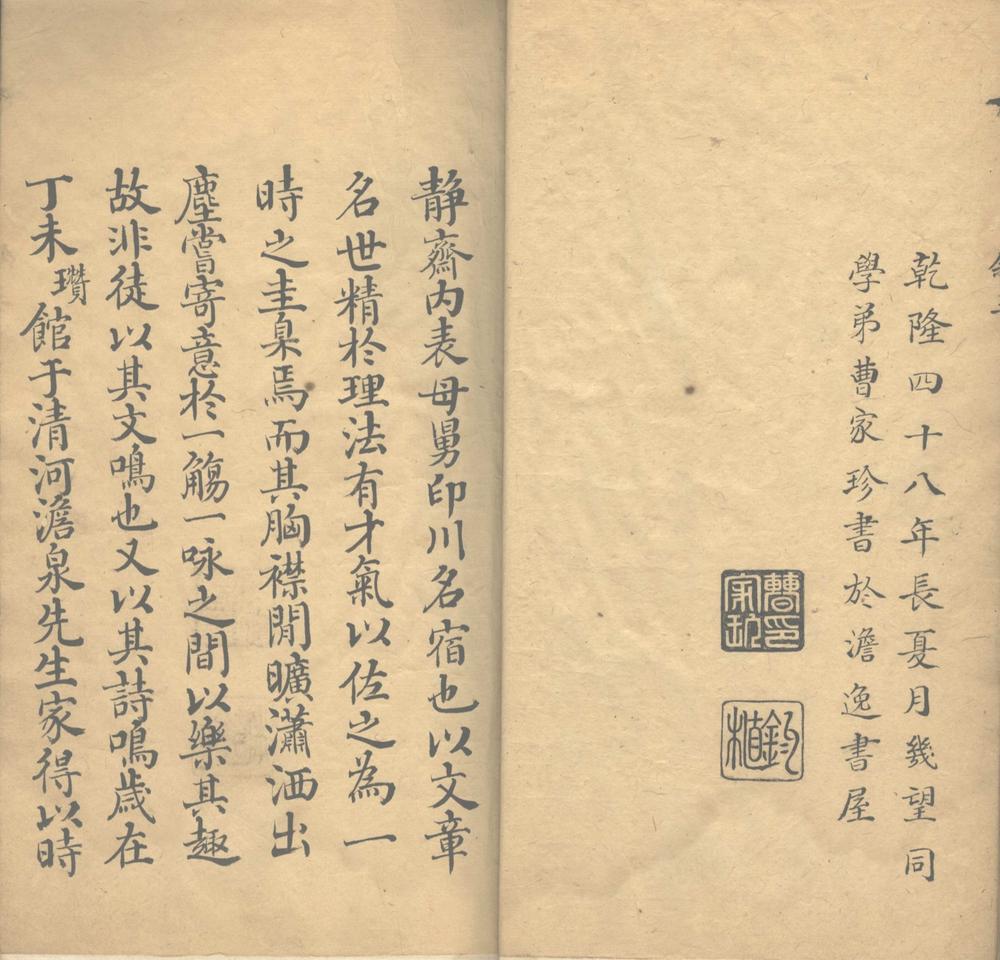 乾隆四十八年長夏月幾望同
學弟曹家珍書於澹逸書屋
曹印家珍
靜齋內表母舅印川名宿也以文章
名世精於理法有才氣以佐之為一
時之圭臬焉而其胸襟閒曠瀟洒出
塵嘗寄意於一觴一咏之間以樂其趣
故非徒以其文鳴也又以其詩鳴歲在
丁未瓚館于清河澹泉先生家得以時